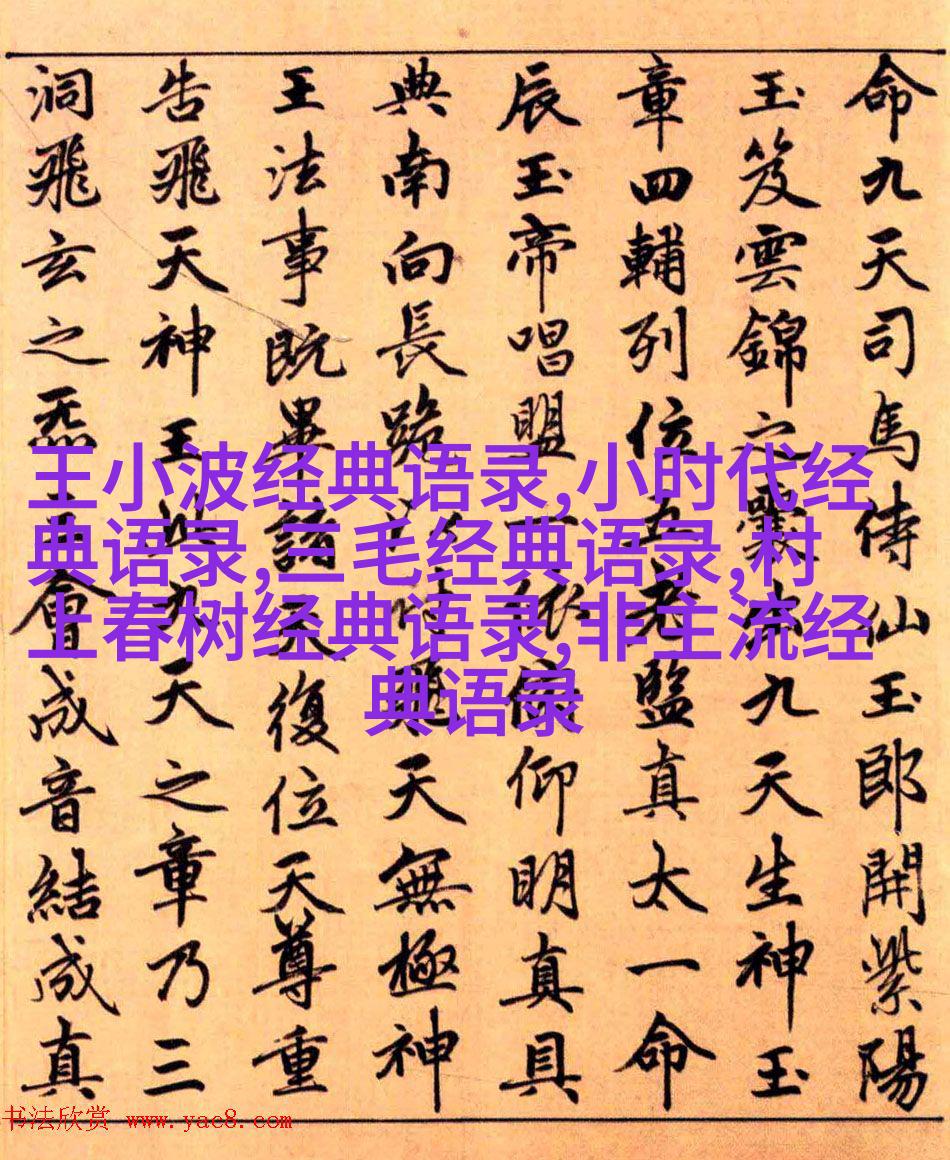 命九天司馬侍仙玉郎開紫陽
玉笈雲錦之囊九天生神玉
章四輔列位五老監真太一命
辰玉帝唱盟一依仰明真具
典南向長跪天無極神
王法事既畢諸天復位天尊重
告飛天神王此九天之章乃三
洞飛玄之炁三會成音結成真
王小波经典语录,小时代经
典语录,三毛经典语录,村
上春树经典语录,非主流经
典语录
书法欣赏 www.yac8.com